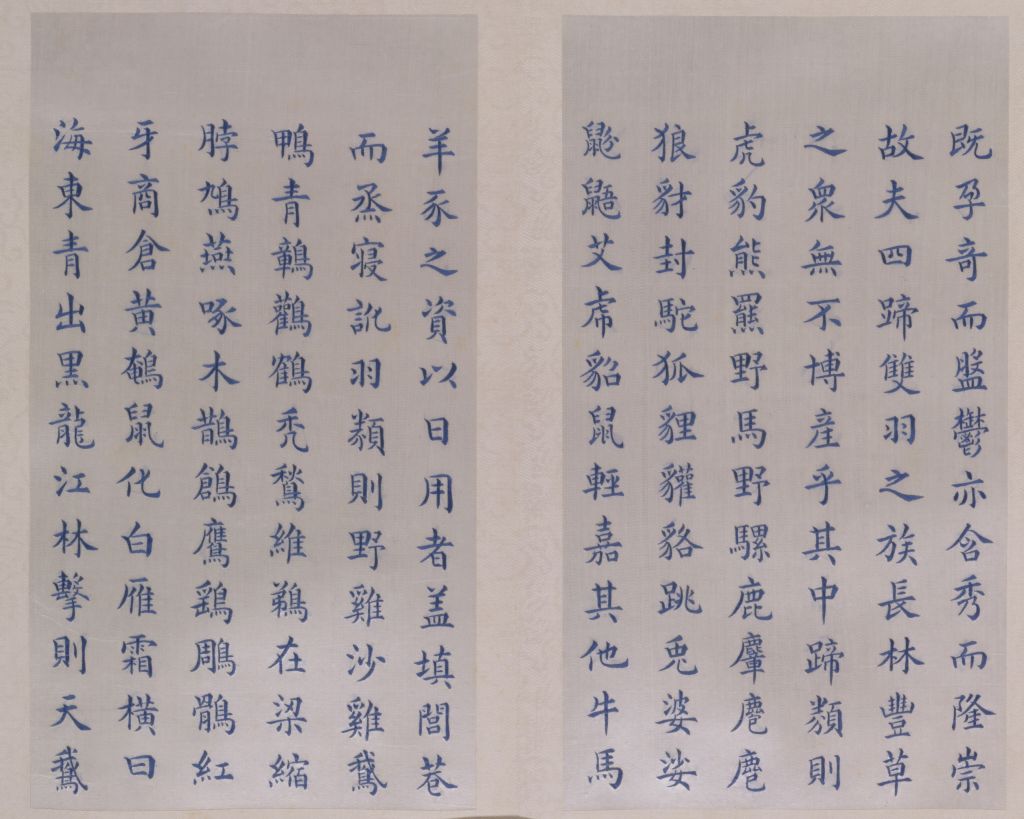 既孕奇而盬鬱亦含秀而隆崇
故夫四蹄雙羽之族長林豐草
之眾無不博產乎其中蹄類則
虎豹熊羆野馬野騾鹿麞麅麀
狼豺封駝狐貍貛貉跳兎婆娑
鼢鼯艾虎貂鼠輕嘉其他牛馬
羊豕之資以日用者盖填閭巷
而烝寖訛羽類則野雞沙雞鵞
鴨青鶄鸛鶴秃鶖維鵜在梁縮
脖鳩燕啄木鵲鶬鷹鷂鵰鶻紅
牙商倉黄鵪鼠化白雁霜横曰
海東青出黒龍江林擊則天鵞